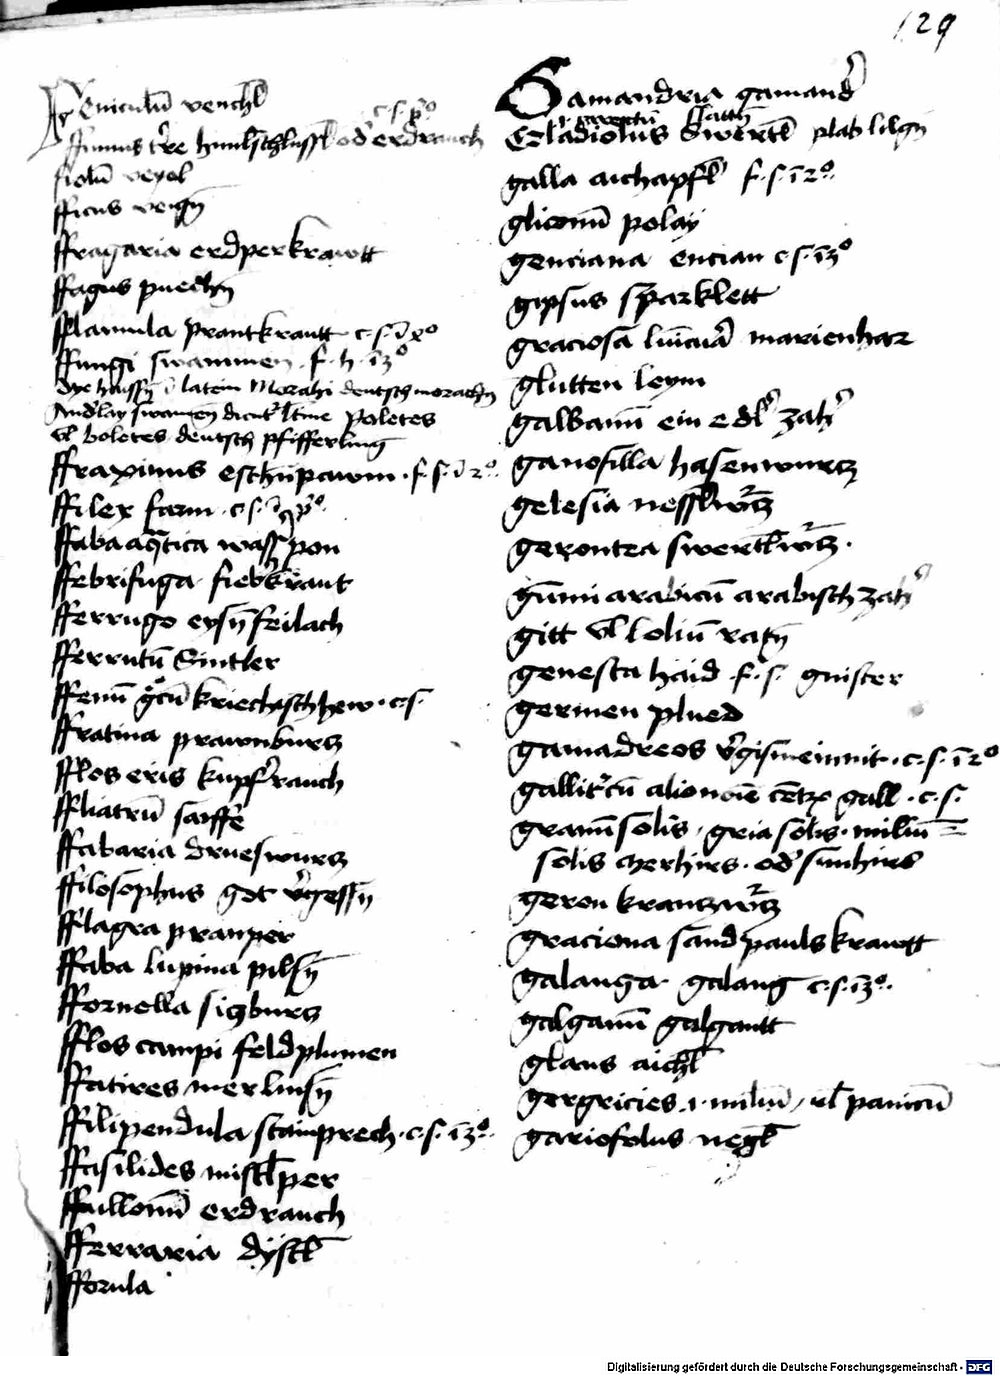 129
Feniculū venchl
c.s.p̄o
ffumus tr̄re himlschlussl od erdrauch
fiolū veyol
fficus veign̄
ffragaria erdperkrawtt
ffagus puechn̄
fflamula prantkrautt c.s.
ffungi swammen f.h.ī3o
latein Morachi deutsch morachn
And'lay swamen dicūt' Poletes
vl boletes deutsch pfifferling
ffraxinus eschnpawm f.s.ī2o
ffilex farm c.s.
ffaba aq̄tica wass'pon
ffebrifuga fieb'kraut
fferrugo eysn̄feilach
fferrutū Sintler
ffenū gc̄ū kriechisch hew c.s.
ffratina prawnburcz
fflos eris kupf'rauch
ffliatrū saffe
ffabaria drueswurcz
ffilosophus got v'gessn̄
fflagra pranper
ffaba lupina pilsn̄
ffornella siczburcz
fflos campi feldplumen
ffatires merlinsn̄
ffilipendula stainprech c.s.ī3o
ffasilides mistlper
ffullonū erdrauch
fferraria dystl
fforula
Gamandria gamand'
Gladiolus Swertl plab lilgn̄
galla aichapfl f.s.ī2o
gliconū polay
genciana encian c.s.ī3o
gipsus sparklett
graciosa marienhar
glutten leym
galbanū ein edl' zah'
gariofilla hasenwurcz
gelesia nesslwr̄cz
gerontea swertlwr̄cz
gūmi arabicū arabisch zah'
gitt vl loliū ratn̄
genesta haid f.s. gnister
germen plued
gamadreos v'gismeinnit c.s.ī2o
gallitr̄cū gall c.s.
granū solis gria solis miliū
solis merhirs od' sunhirs
geron kranzwr̄cz
graciona sand pauls krawtt
galanga galang c.s.ī3o
galganū galgantt
glans aichl
gergricies .i. miliū vl panicū
gariofolus negl
Digitalisierung gefördert durch die Deutsche Forschungsgemeinschaft - DFG